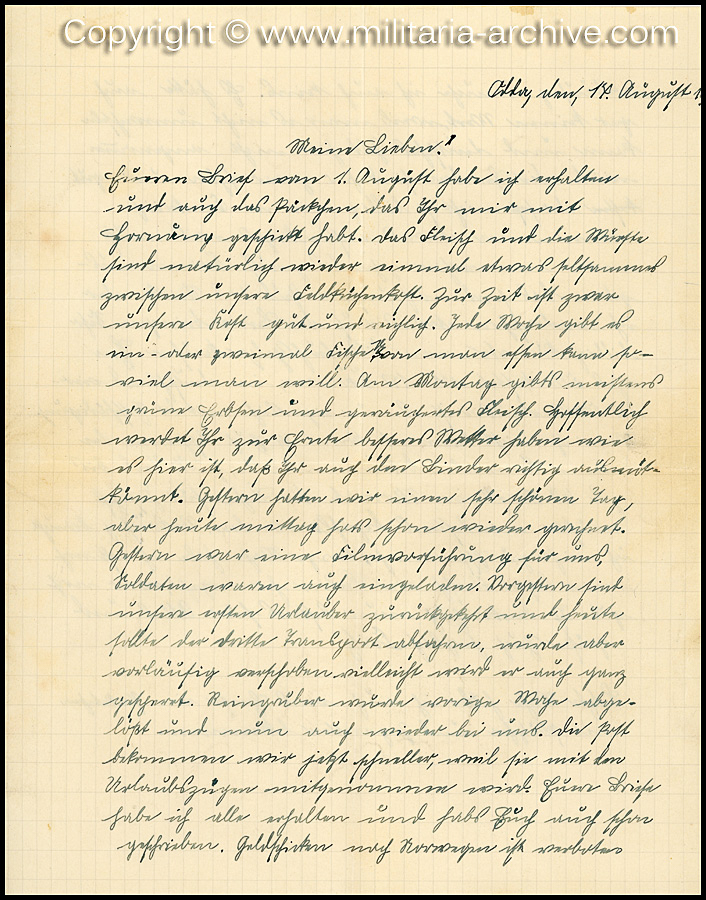 Copyright © www.militaria-archive.com
Otta, den, 14. August
Meine Lieben!
Eueren Brief vom 1. August habe ich erhalten
und auch das Päckchen, das Ihr mir mit
Hornung geschickt habt. Das Fleisch und die Würste
sind natürlich wieder einmal etwas seltsammes
zwischen unsere Feldküchenkost. Zur Zeit ist zwar
unsere Kost gut und reichlich. Jede Woche gibt es
ein- oder zweimal Fische wovon man essen kann so-
viel man will. Am Montag gibts meistens
grüne Erbsen und geräuchertes Fleisch. Hoffentlich
werdet Ihr zur Ernte besseres Wetter haben wie
es hier ist, daß Ihr auch den Binder richtig ausnüt-
könnt. Gestern hatten wir einen sehr schönen Tag,
aber heute mittag hats schon wieder geregnet.
Gestern war eine Filmvorführung für uns,
Soldaten waren auch eingeladen. Vorgestern sind
unsere ersten Urlauber zurückgekehrt und heute
sollte der dritte Transport abfahren, wurde aber
vorläufig verschoben vielleicht wird er auch ganz
gesperrt. Reingruber wurde vorige Woche abge-
lößt und nun auch wieder bei uns. Die Post
bekommen wir jetzt schneller, weil sie mit den
Urlaubszügen mitgenommen wird. Euere Briefe
habe ich alle erhalten und habs Euch auch schon
geschrieben. Geldschicken nach Norwegen ist verboten